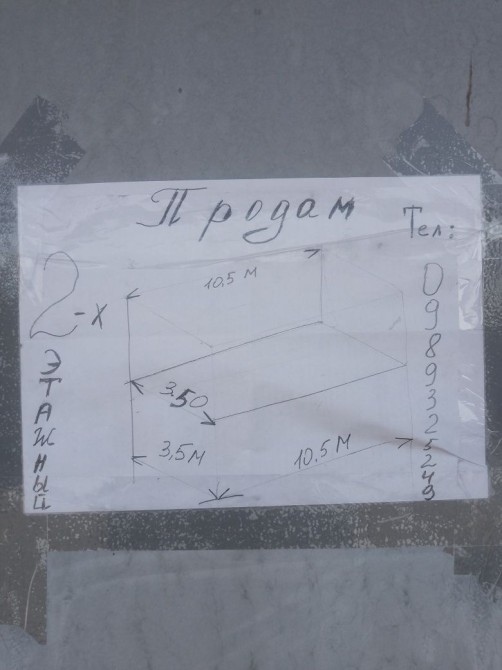 Продам
Тел:
0989325249
2-х
этажный
10.5 м
3,50
3,5м
10.5 м